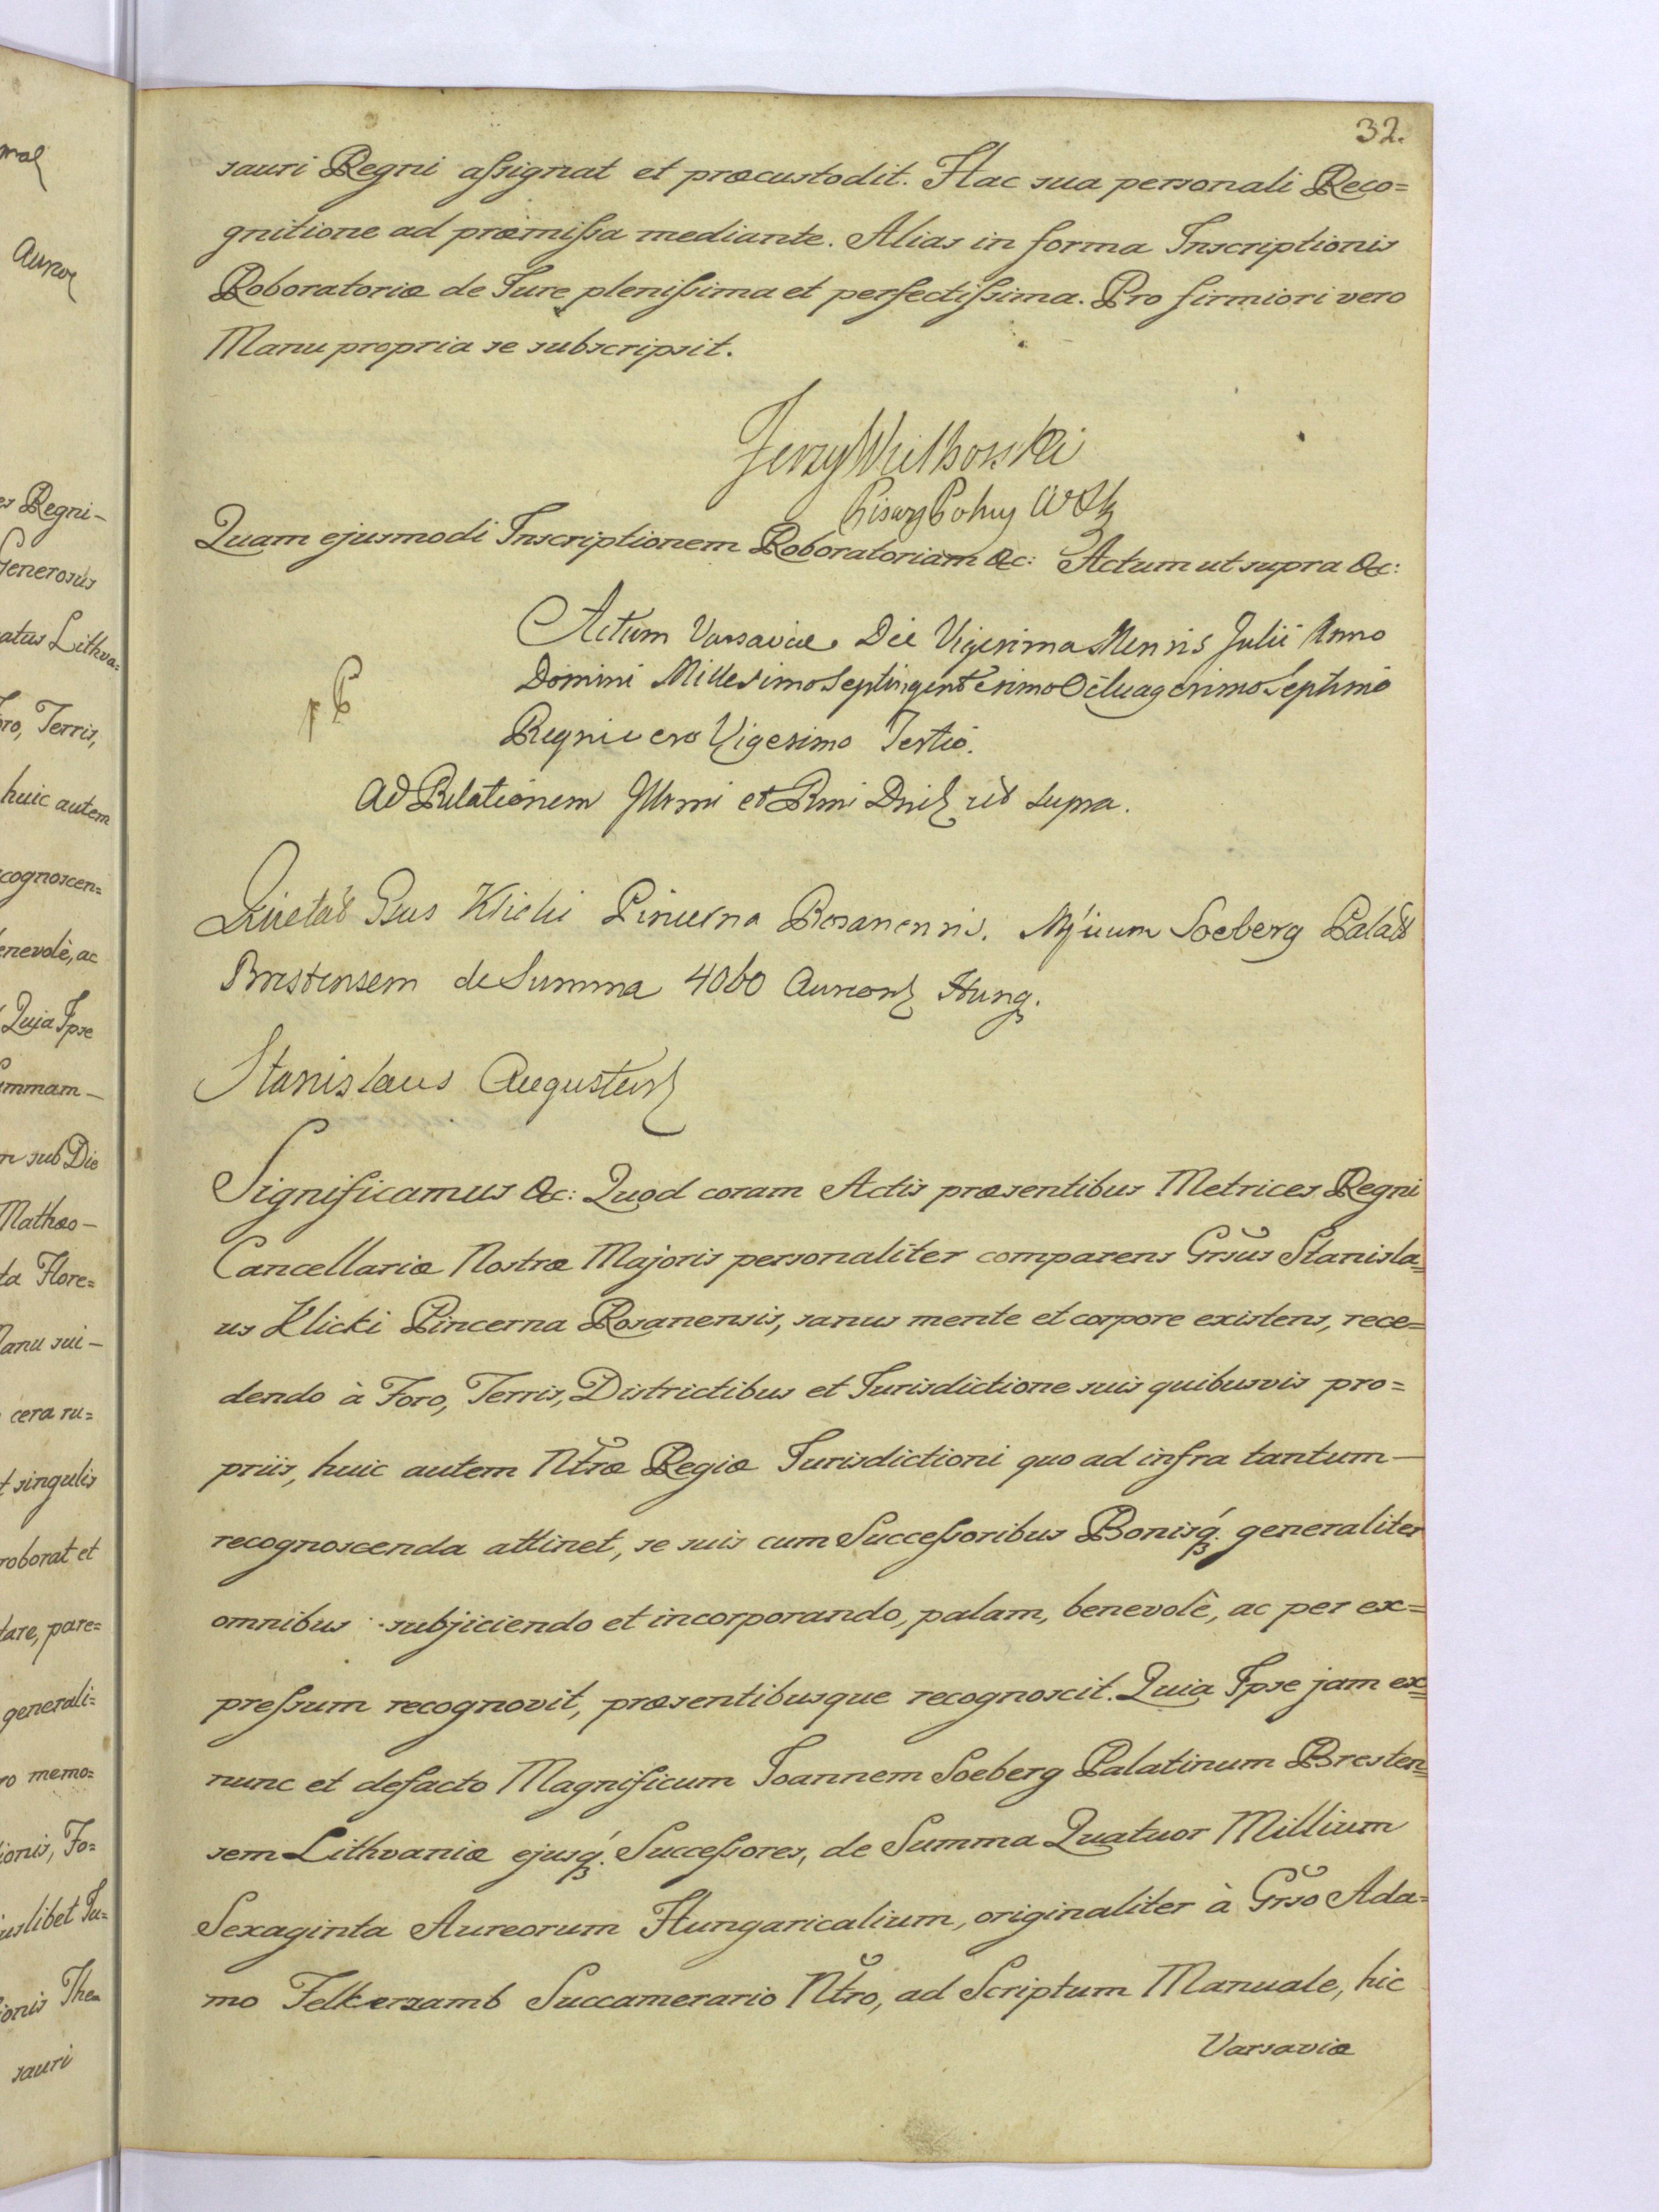 32.
sauri Regni assignat et præcustodit. Hac sua personali Reco=
gnitione ad præmissa mediante. Alias in forma Inscriptionis
Roboratoriæ de Jure plenissima et perfectissima. Pro firmiori vero
Manu propria se subscripsit.
Jerzy
Quam ejusmodi Inscriptionem Roboratoriam &c: Actum ut supra &c:
Actum Varsaviae Die Vigesima Mensis Julii Anno
Domini Millesimo Septingentesimo Octuagesimo Septimo
Regni vero Vigesimo Tertio.
Ad Relationem Illrmi et Rmi Dni ut supra.
Quietat Gsus Klicki Pincerna Rosanensis. Mfficum Soeberg Palat
Brestensem de Summa 4060 Aureor Hung.
Stanislaus Augustus
Significamus &c: Quod coram Actis præsentibus Metrices Regni
Cancellariæ Nostræ Majoris personaliter comparens Grsus Stanisla=
us Klicki Pincerna Rosanensis, sanus mente et corpore existens, rece=
dendo à Foro, Terris, Districtibus et Jurisdictione suis quibusvis pro=
priis, huic autem Ntræ Regiæ Jurisdictioni quo ad infra tantum—
recognoscenda attinet, se suis cum Successoribus Bonisq́. generaliter
omnibus subjiciendo et incorporando, palam, benevolè, ac per ex=
pressum recognovit, præsentibusque recognoscit. Quia Ipse jam ex=
nunc et defacto Magnificum Joannem Soeberg Palatinum Bresten=
sem Lithvaniæ ejusq́. Successores, de Summa Quatuor Millium
Sexaginta Aureorum Hungaricalium, originaliter à Grso Ada=
mo Felkerzamb Succamerario Ntro, ad Scriptum Manuale, hic
Varsaviæ
es Regni—
Generosus
atus Lithva=
oro, Terris,
huic autem
cognoscen=
enevolè, ac
Quia Ipse
ummam—
sub Die
Mathæo—
ta Flore=
Manu sui—
cera ru=
t singulis
roborat et
tare, pare=
generali=
ro memo=
ionis, Fo=
uslibet Ju=
ionis The=
sauri